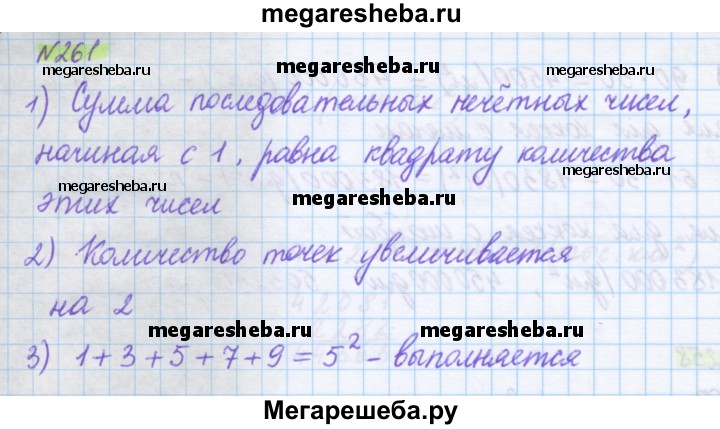 megaresheba.ru
№261
megaresheba.ru megaresheba.ru
1) Сумма последовательных нечётных чисел,
начиная с 1, равна квадрату количества
megaresheba.ru megaresheba.ru
этих чисел
2) Количество точек увеличивается
на 2
megaresheba.ru megaresheba.ru
3) 1+3+5+7+9=5² - выполняется
Мегарешеба.ру